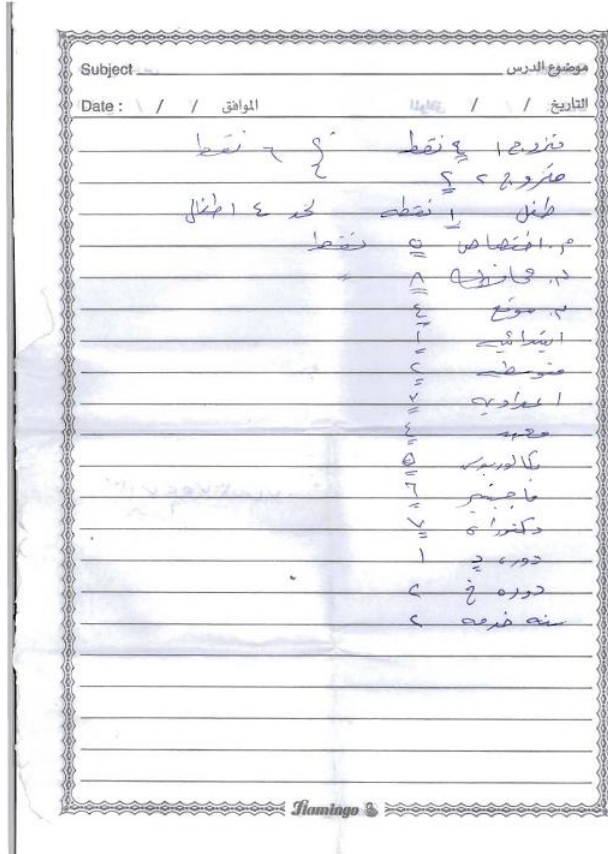 Subject موضوع الدرس
Date : / / الموافق / / التاريخ
متزوج ١ ٤ نقط ٦ نقط
متزوج ٢ ٢
طفل ١ نقطه لحد ٤ اطفال
م. اختصاص ٥ نقط
م. محافظه ٨ "
م. موقع ٤
ابتدائيه ١
متوسطه ٢
اعداديه ٧
معهد ٤
بكالوريوس ٥
ماجستير ٦
دكتوراه ٧
دوره د ١
دوره خ ٢
سنه خدمه ٢
Flamingo